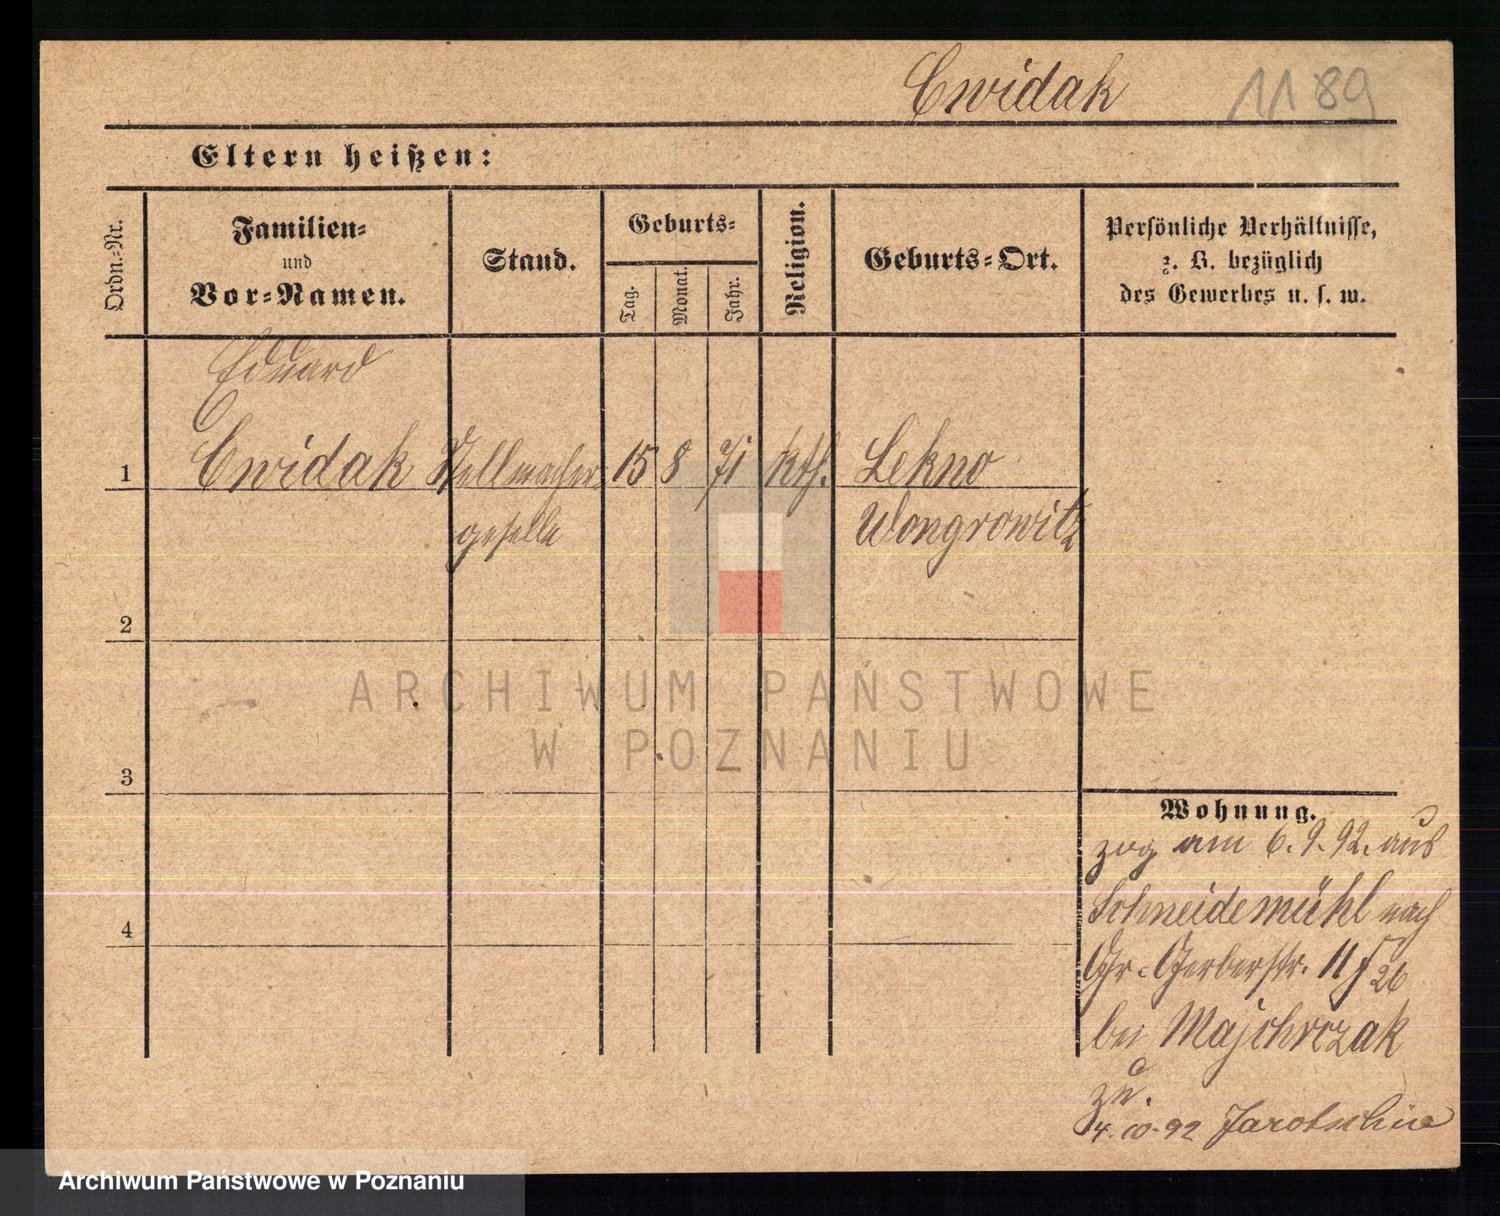 Cwidak 1189
Eltern heißen:
Ordn.-Nr.
Familien-
und
Vor-Namen.
Stand.
Geburts-
Tag.
Monat.
Jahr.
Religion.
Geburts-Ort.
Persönliche Verhältnisse,
z. B. bezüglich
des Gewerbes u. s. w.
Eduard
1 Cwidak Stellmacher 15 8 71 kth. Lekno
geselle Wongrowitz
2
ARCHIWUM PAŃSTWOWE
W POZNANIU
3
Wohnung.
zog am 6. 9. 92. aus
Schneidemühl nach
4
Gr. Gerberstr. 11 f 26
bei Majchrczak
zu.
4. 10. 92 Jarotschin
Archiwum Państwowe w Poznaniu